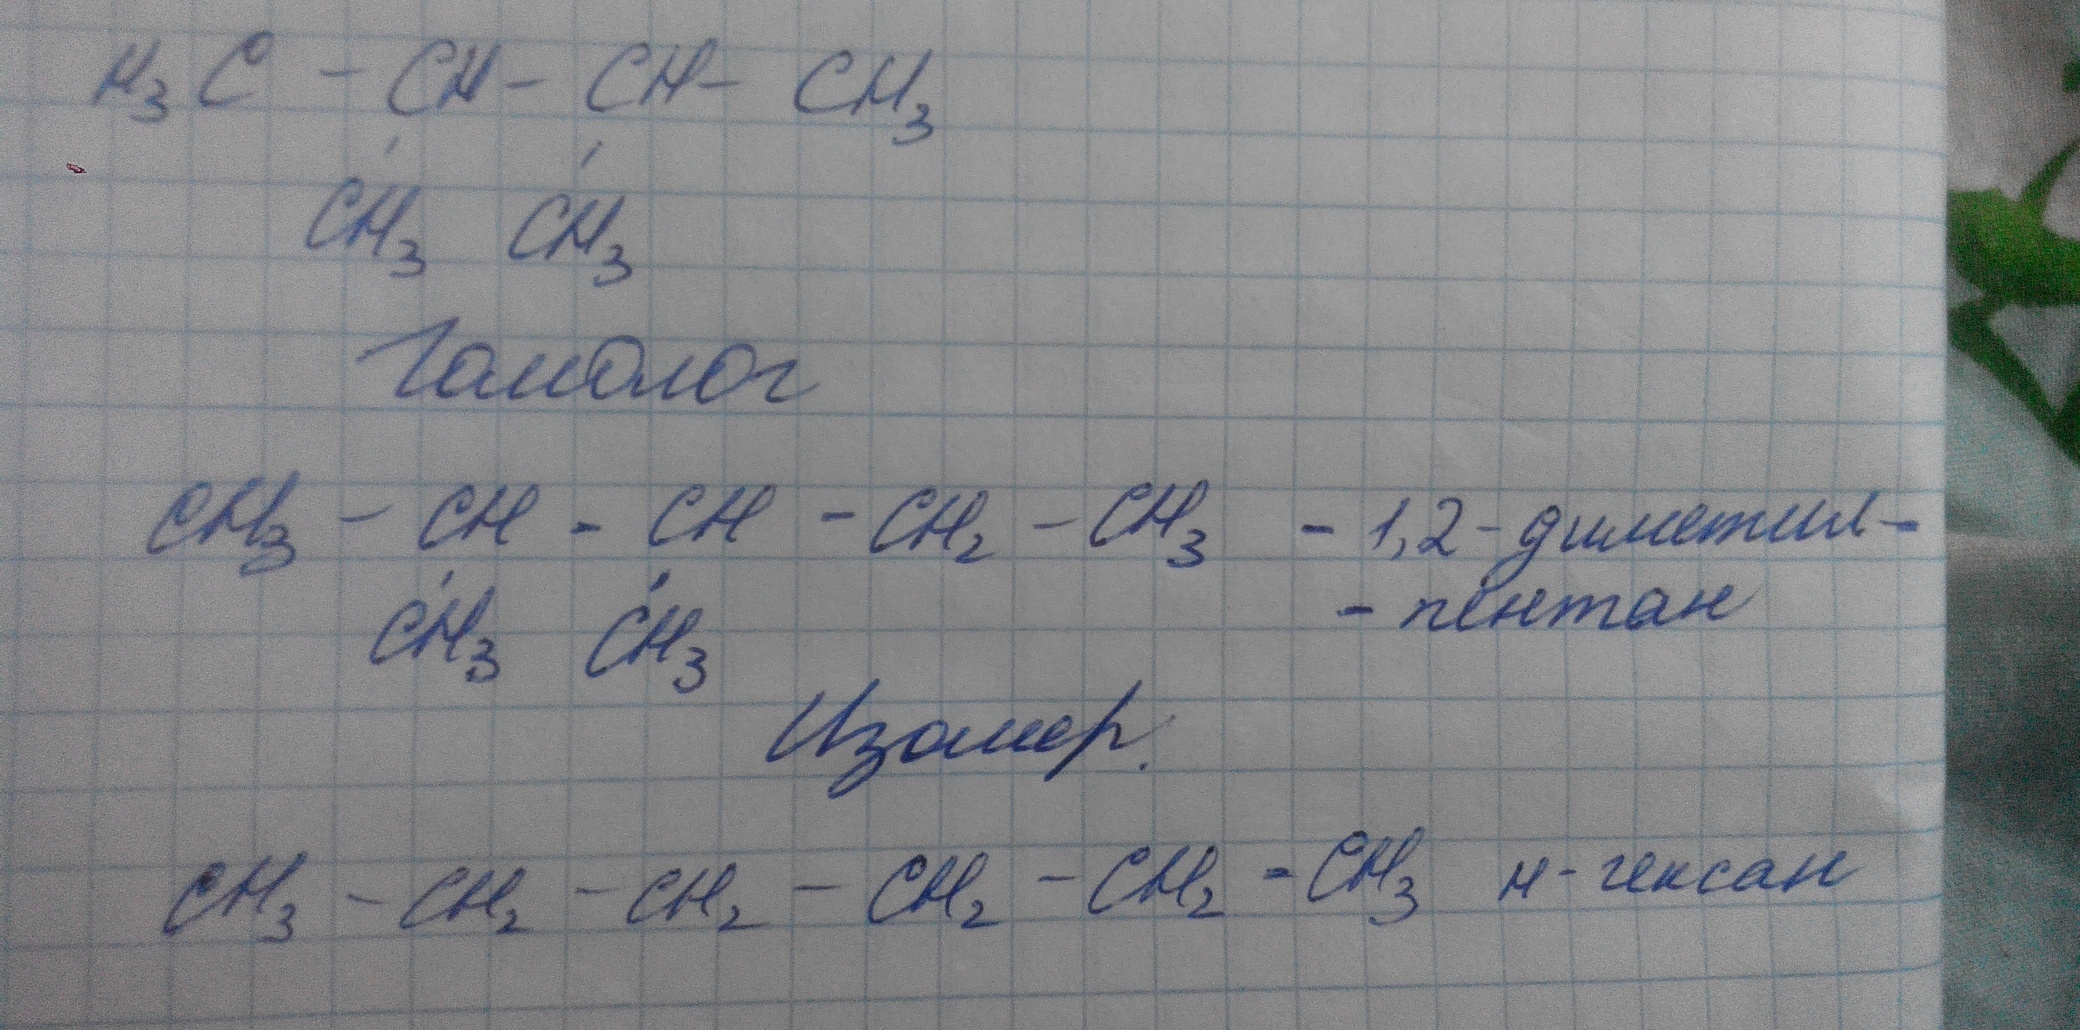 H₃C - CH - CH - CH₃
CH₃ CH₃
Гомолог
CH₃ - CH - CH - CH₂ - CH₃ - 1,2-диметил-
CH₃ CH₃ - пентан
Изомер.
CH₃ - CH₂ - CH₂ - CH₂ - CH₂ - CH₃ н-гексан